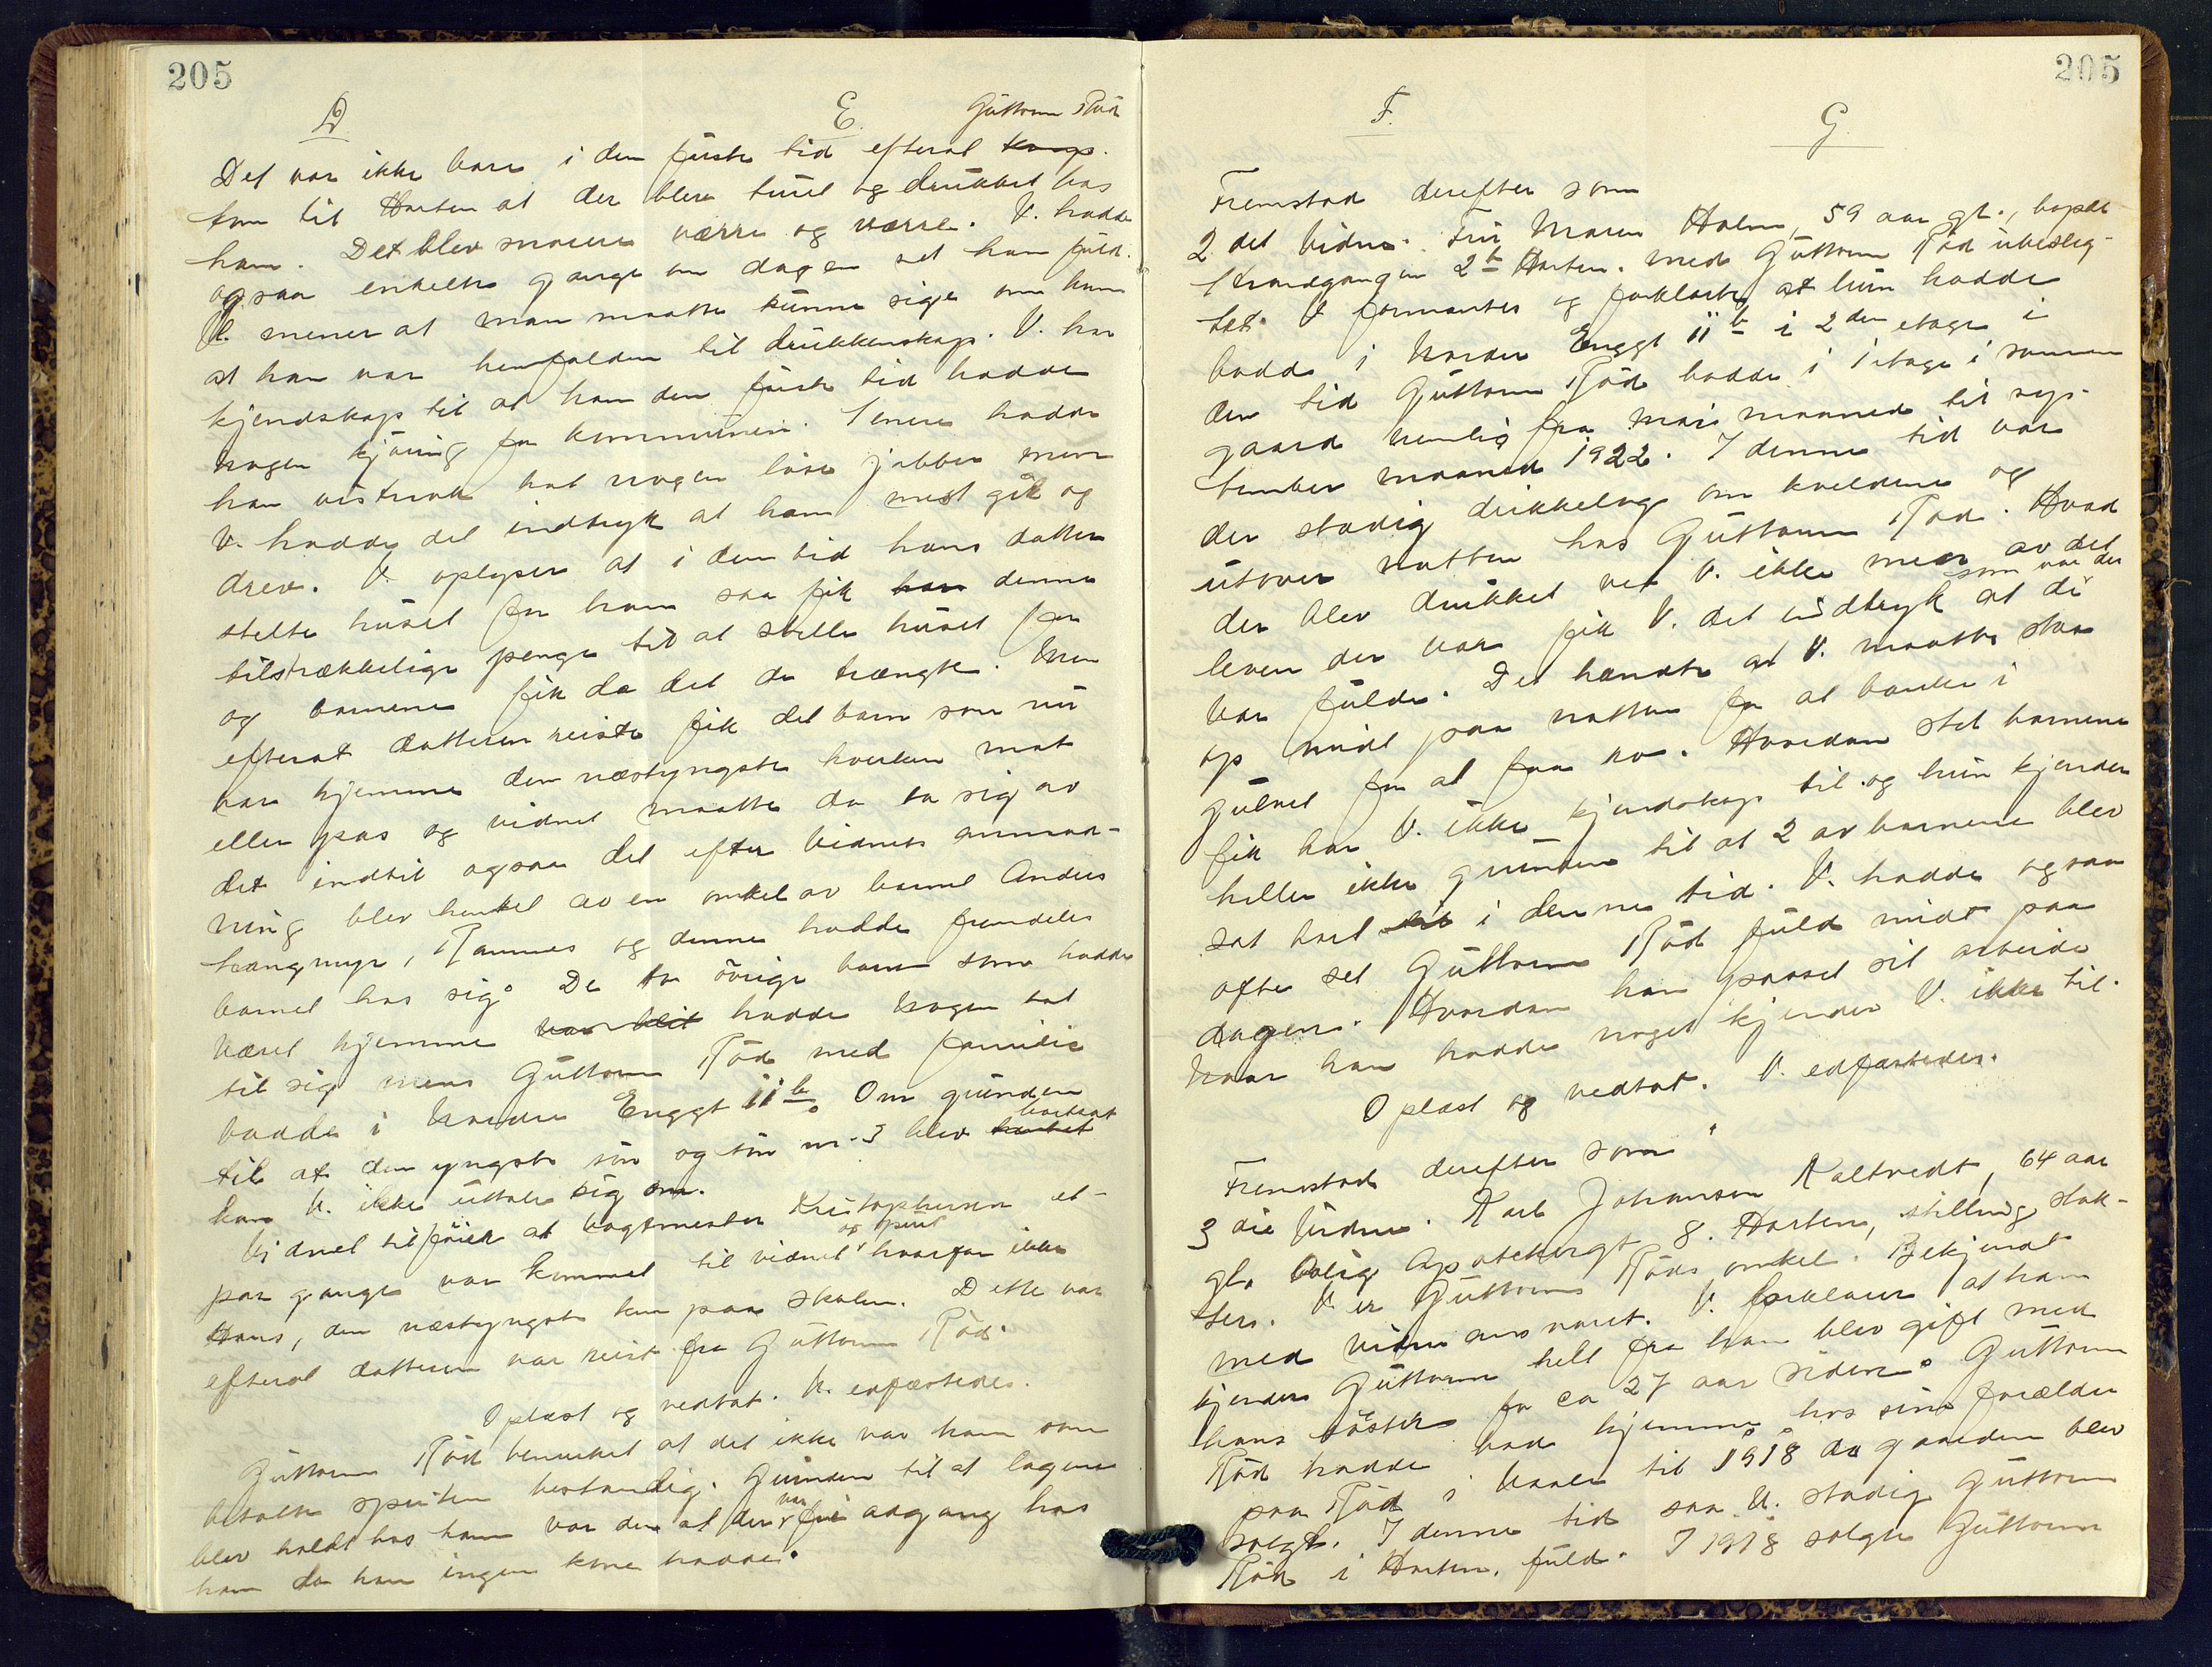 205
D E. Guttorm Röd
Det var ikke bare i den förste tid efterat
kom til Horten at der blev turet og drukket hos
ham. Det blev snarere værre og værre. V. hadde
ogsaa enkelte gange om dagen set ham fuld.
V. mener at man maatte kunne sige om ham
at han var henfalden til drukkenskap. V. har
kjendskap til at han den förste tid hadde
nogen kjöring for kommunen. Senere hadde
han vistnok hat nogen löse jobber men
V. hadde det indtryk at han mest gik og
drev. V. oplyser at i den tid hans datter
stelte huset for ham saa fik han denne
tilstrækkelige penge til at stelle huset for
og barnene fik da det de trængte. Men
efterat datteren reiste fik det barn som nu
var hjemme den næstyngste hverken mat
eller pas og vidnet maatte da ta sig av
det indtil ogsaa det efter vidnets anmod-
ning blev hentet av en onkel av barnet Anders
hangmyr, Ramnes og denne hadde fremdeles
barnet hos sig. De to övrige barn som hadde
været hjemme var blit hadde nogen tat
til sig mens Guttorm Röd med familie
bodde i Nordre Enggt 11 b. Om grunden
til at den yngste sön og sön nr. 3 blev hentet bortsat
kan V. ikke uttale sig om.
Vidnet tilföier at vagtmester Kristophersen et
par gange var kommet til vidnet og spurt hvorfor ikke
Hans, den næstyngste kom paa skolen. Dette var
efterat datteren var reist fra Guttorm Röd.
Oplæst og vedtat. V. edfæstedes.
Guttorm Röd bemerket at det ikke var ham som
betalte spriten bestandig. Grunden til at lagene
blev holdt hos ham var den at der var fri adgang hos
ham da han ingen kone hadde.
205
F. G.
Fremstod derefter som
2 det Vidne. Fru Maren Holm, 59 aar gl., bopæl
Strandgangen 2 b Horten. med Guttorm Röd ubeslig-
tet. V. formantes og forklarte at hun hadde
bodd i Nordre Enggt 11 b i 2den etage i
den tid Guttorm Röd bodde i 1 etage i samme
gaard nemlig fra mai maaned til sep-
tember maaned 1922. I denne tid var
der stadig drikkelag om kveldene og
utover natten hos Guttorm Röd. Hvad
der blev drukket vet V. ikke men av det
leven der var fik V. det indtryk at di som var der
var fulde. Det hændte at V. maatte staa
op midt paa natten for at banke i
gulvet for at faa ro. Hvordan stel barnene
fik har V. ikke kjendskap til og hun kjender
heller ikke grunden til at 2 av barnene blev
sat bort i denne tid. V. hadde ogsaa
ofte set Guttorm Röd fuld midt paa
dagen. Hvordan han passet sit arbeide
naar han hadde noget kjender V. ikke til.
Oplæst og vedtat. V. edfæstedes.
Fremstod derefter som
3 die Vidne. Karl Johansen Kaltvedt, 64 aar
gl. bolig Apotekergt 8. Horten, stilling slak-
ter. V. er Guttorms Röds onkel. Bekjendt
med vidneansvaret. V. forklarer at han
kjender Guttorm helt fra han blev gift med
hans söster for ca 27 aar siden. Guttorm
Röd hadde bod hjemme hos sine forældre
paa Röd i Vaale til 1918 da gaarden blev
solgt. I denne tid saa V. stadig Guttorm
Röd i Horten, fuld. I 1918 solgte Guttorm